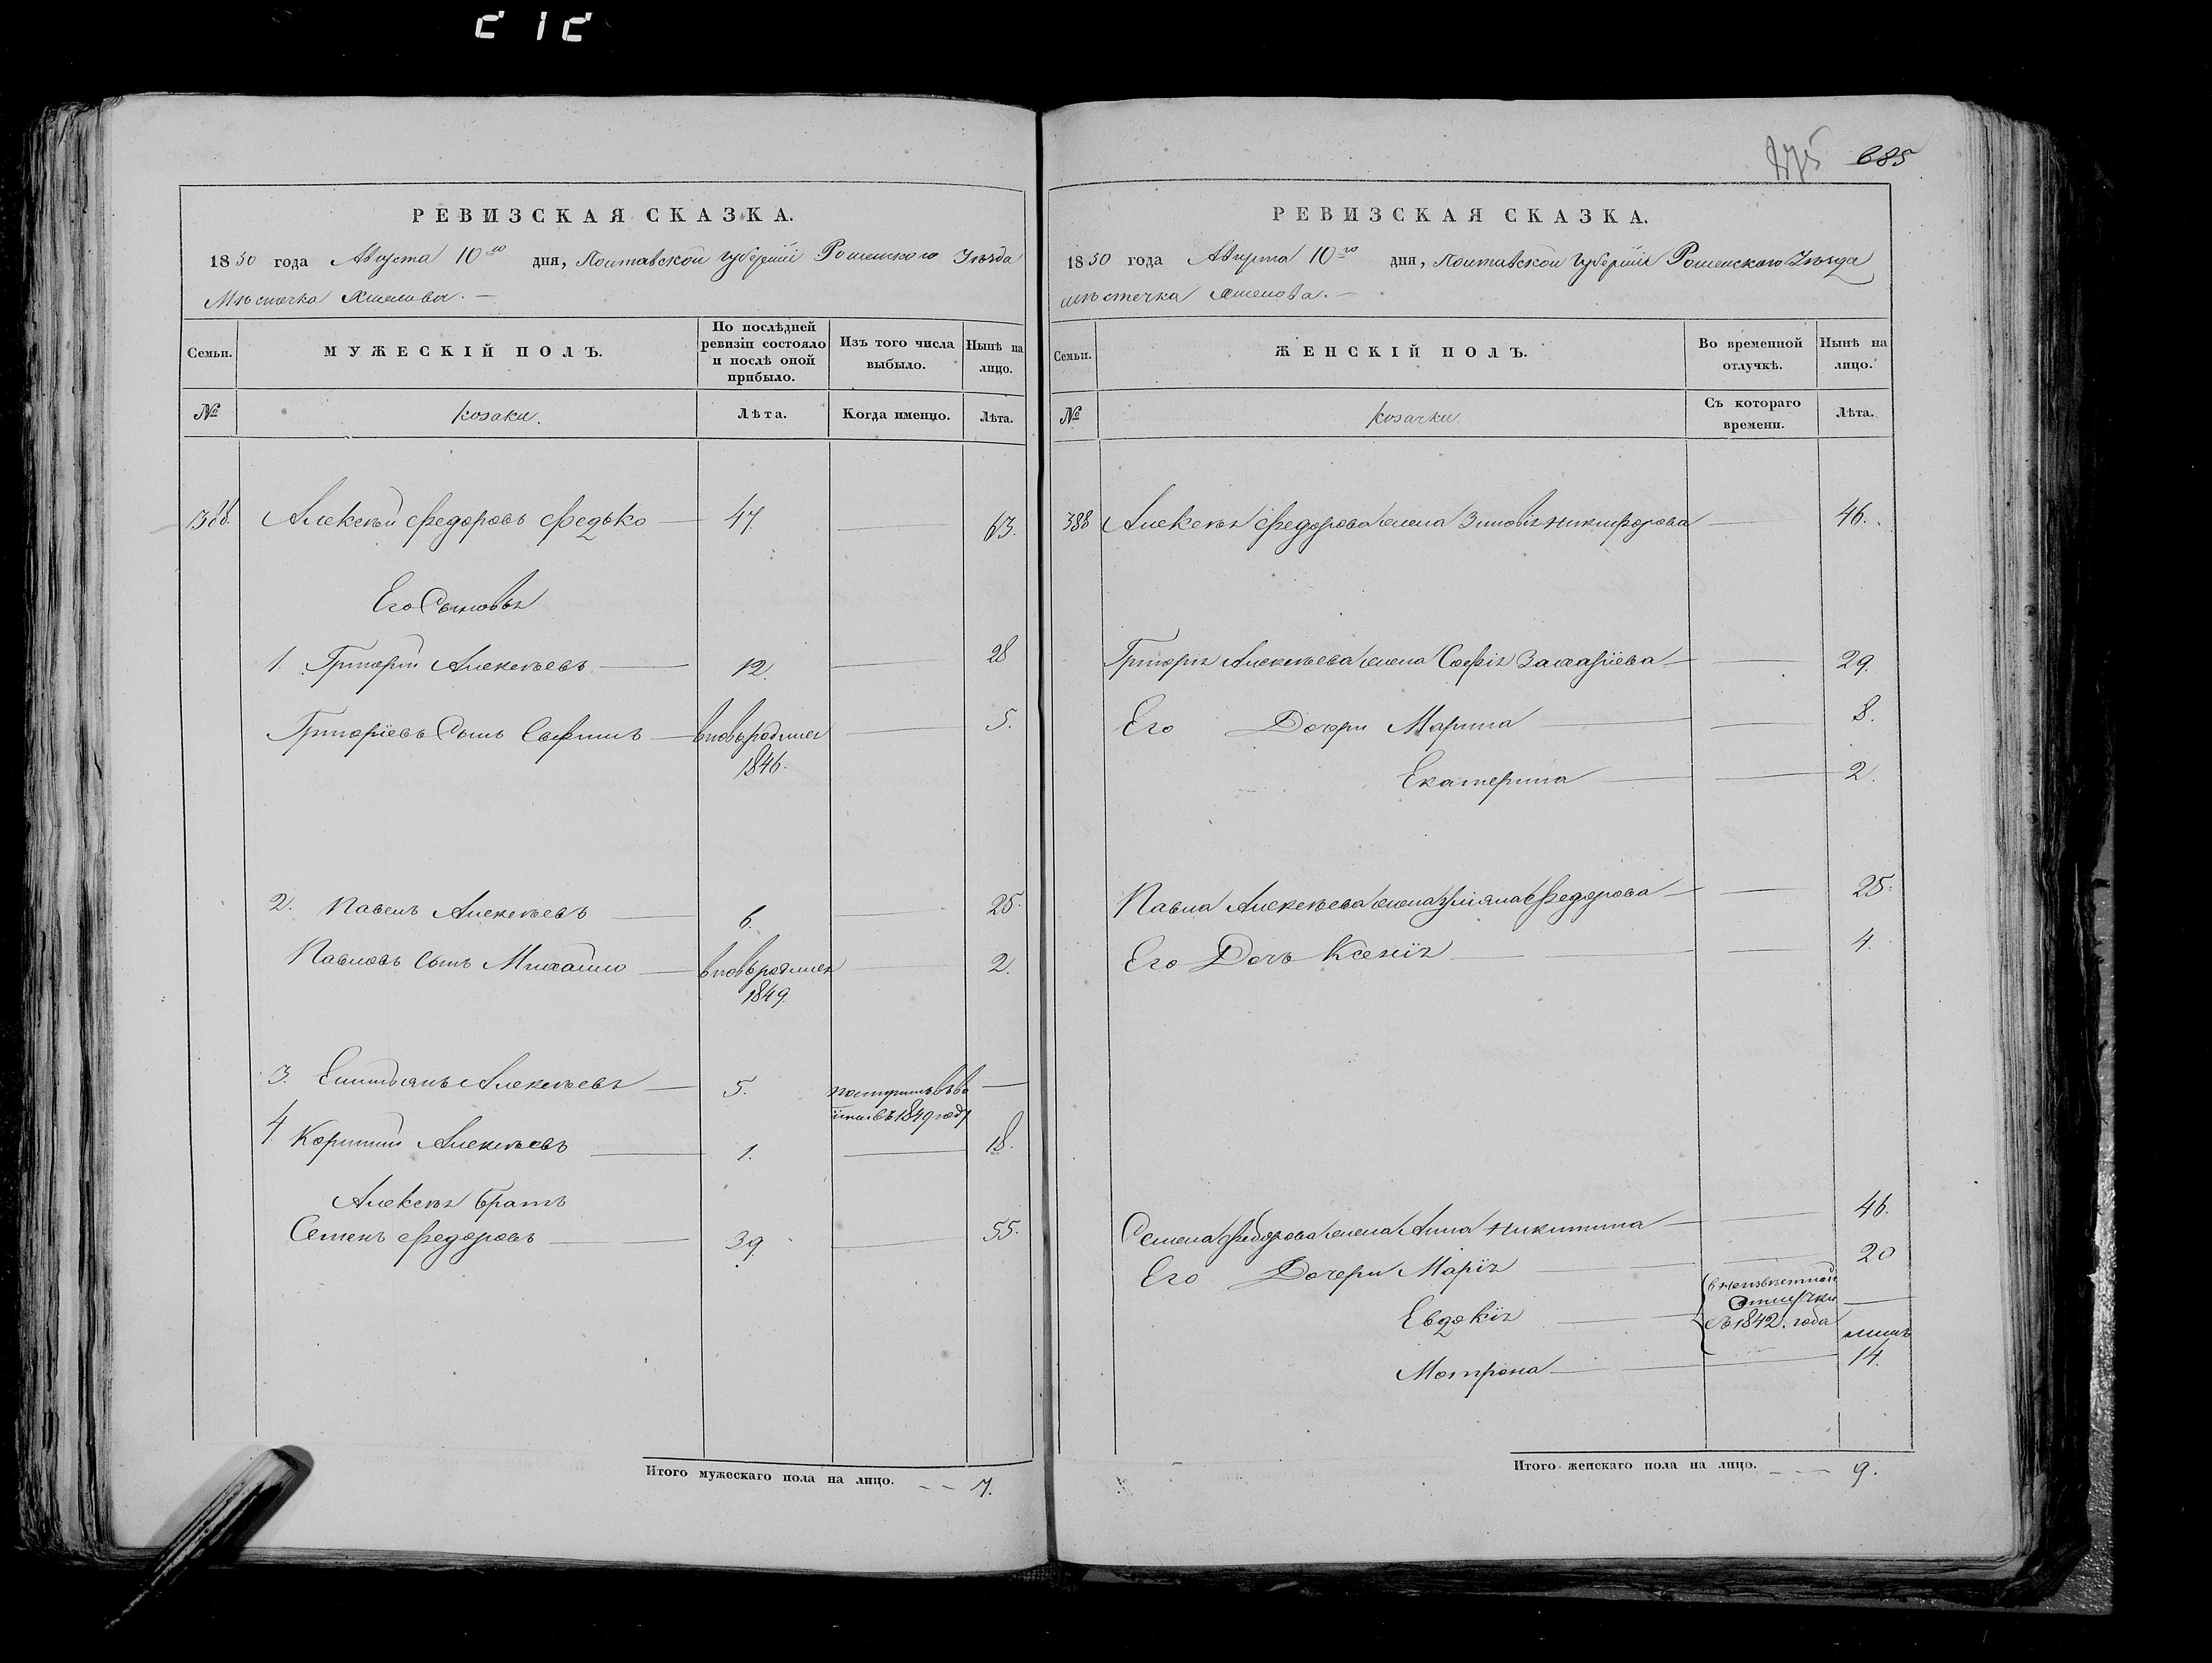 685
РЕВИЗСКАЯ СКАЗКА.
1850 года Августа 10го дня, Полтавской губерніи Роменского Уѣзда
Мѣстечка
Семьи.
МУЖЕСКІЙ ПОЛЪ.
По послѣдней ревизіи состояло и послѣ оной прибыло.
Изъ того числа выбыло.
Нынѣ на лицо.
№
козаки.
Лѣта.
Когда именно.
Лѣта.
388. Алексѣй Федоровъ Федько 47 63.
Его Сыновья
1. Григорій Алексѣевъ 12. 28
Григоріевъ Сынъ вновьродился 5.
1846.
2. Павелъ Алексѣевъ 6. 25.
Павловъ сынъ Михайло вновьродился 2.
1849.
3. Алексѣевъ 5.
въ 1849 году
4. Алексѣевъ 1. 18.
Алексѣя братъ
Семенъ Федоровъ 39. 55.
Итого мужескаго пола на лицо. 7.
РЕВИЗСКАЯ СКАЗКА.
1850 года Августа 10го дня, Полтавской губерніи Роменского Уѣзда
мѣстечка
Семьи.
ЖЕНСКІЙ ПОЛЪ.
Во временной отлучкѣ.
Нынѣ на лицо.
№
козачки.
Съ котораго времени.
Лѣта.
388 Алексѣя Федорова жена Зиновія Никифорова 46.
Григорія Алексѣева жена Софія Захаріева 29.
Его Дочери Марина 8.
Екатерина 2.
Павла Алексѣева жена Уліяна Федорова 25.
Его Дочь Ксенія 4.
Семена Федорова жена Анна Никитина 46.
Его Дочери Марія 20
Евдокія
въ неизвѣстной
отлучки
съ 1842. года
Мотрона 14.
Итого женскаго пола на лицо. 9.